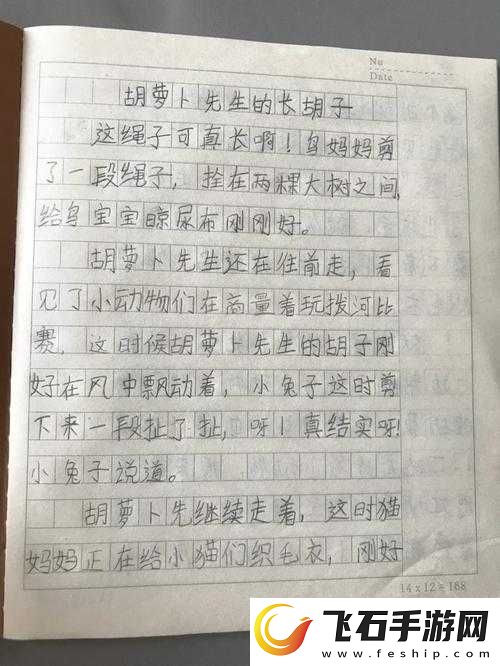 No
Date
胡萝卜先生的长胡子
这绳子可真长啊！鸟妈妈剪
了一段绳子，拴在两棵大树之间，
给鸟宝宝晾尿布刚刚好。
胡萝卜先生还在往前走，看
见了小动物们在商量着玩拨河比
赛，这时候胡萝卜先生的胡子刚
好在风中飘动着，小兔子这时剪
下来一段扯了扯，呀！真结实呀！
小兔子说道。
胡萝卜先继续走着，这时猫
妈妈正在给小猫们织毛衣，刚好
14×12=168
飞石手游网
www.feship.com